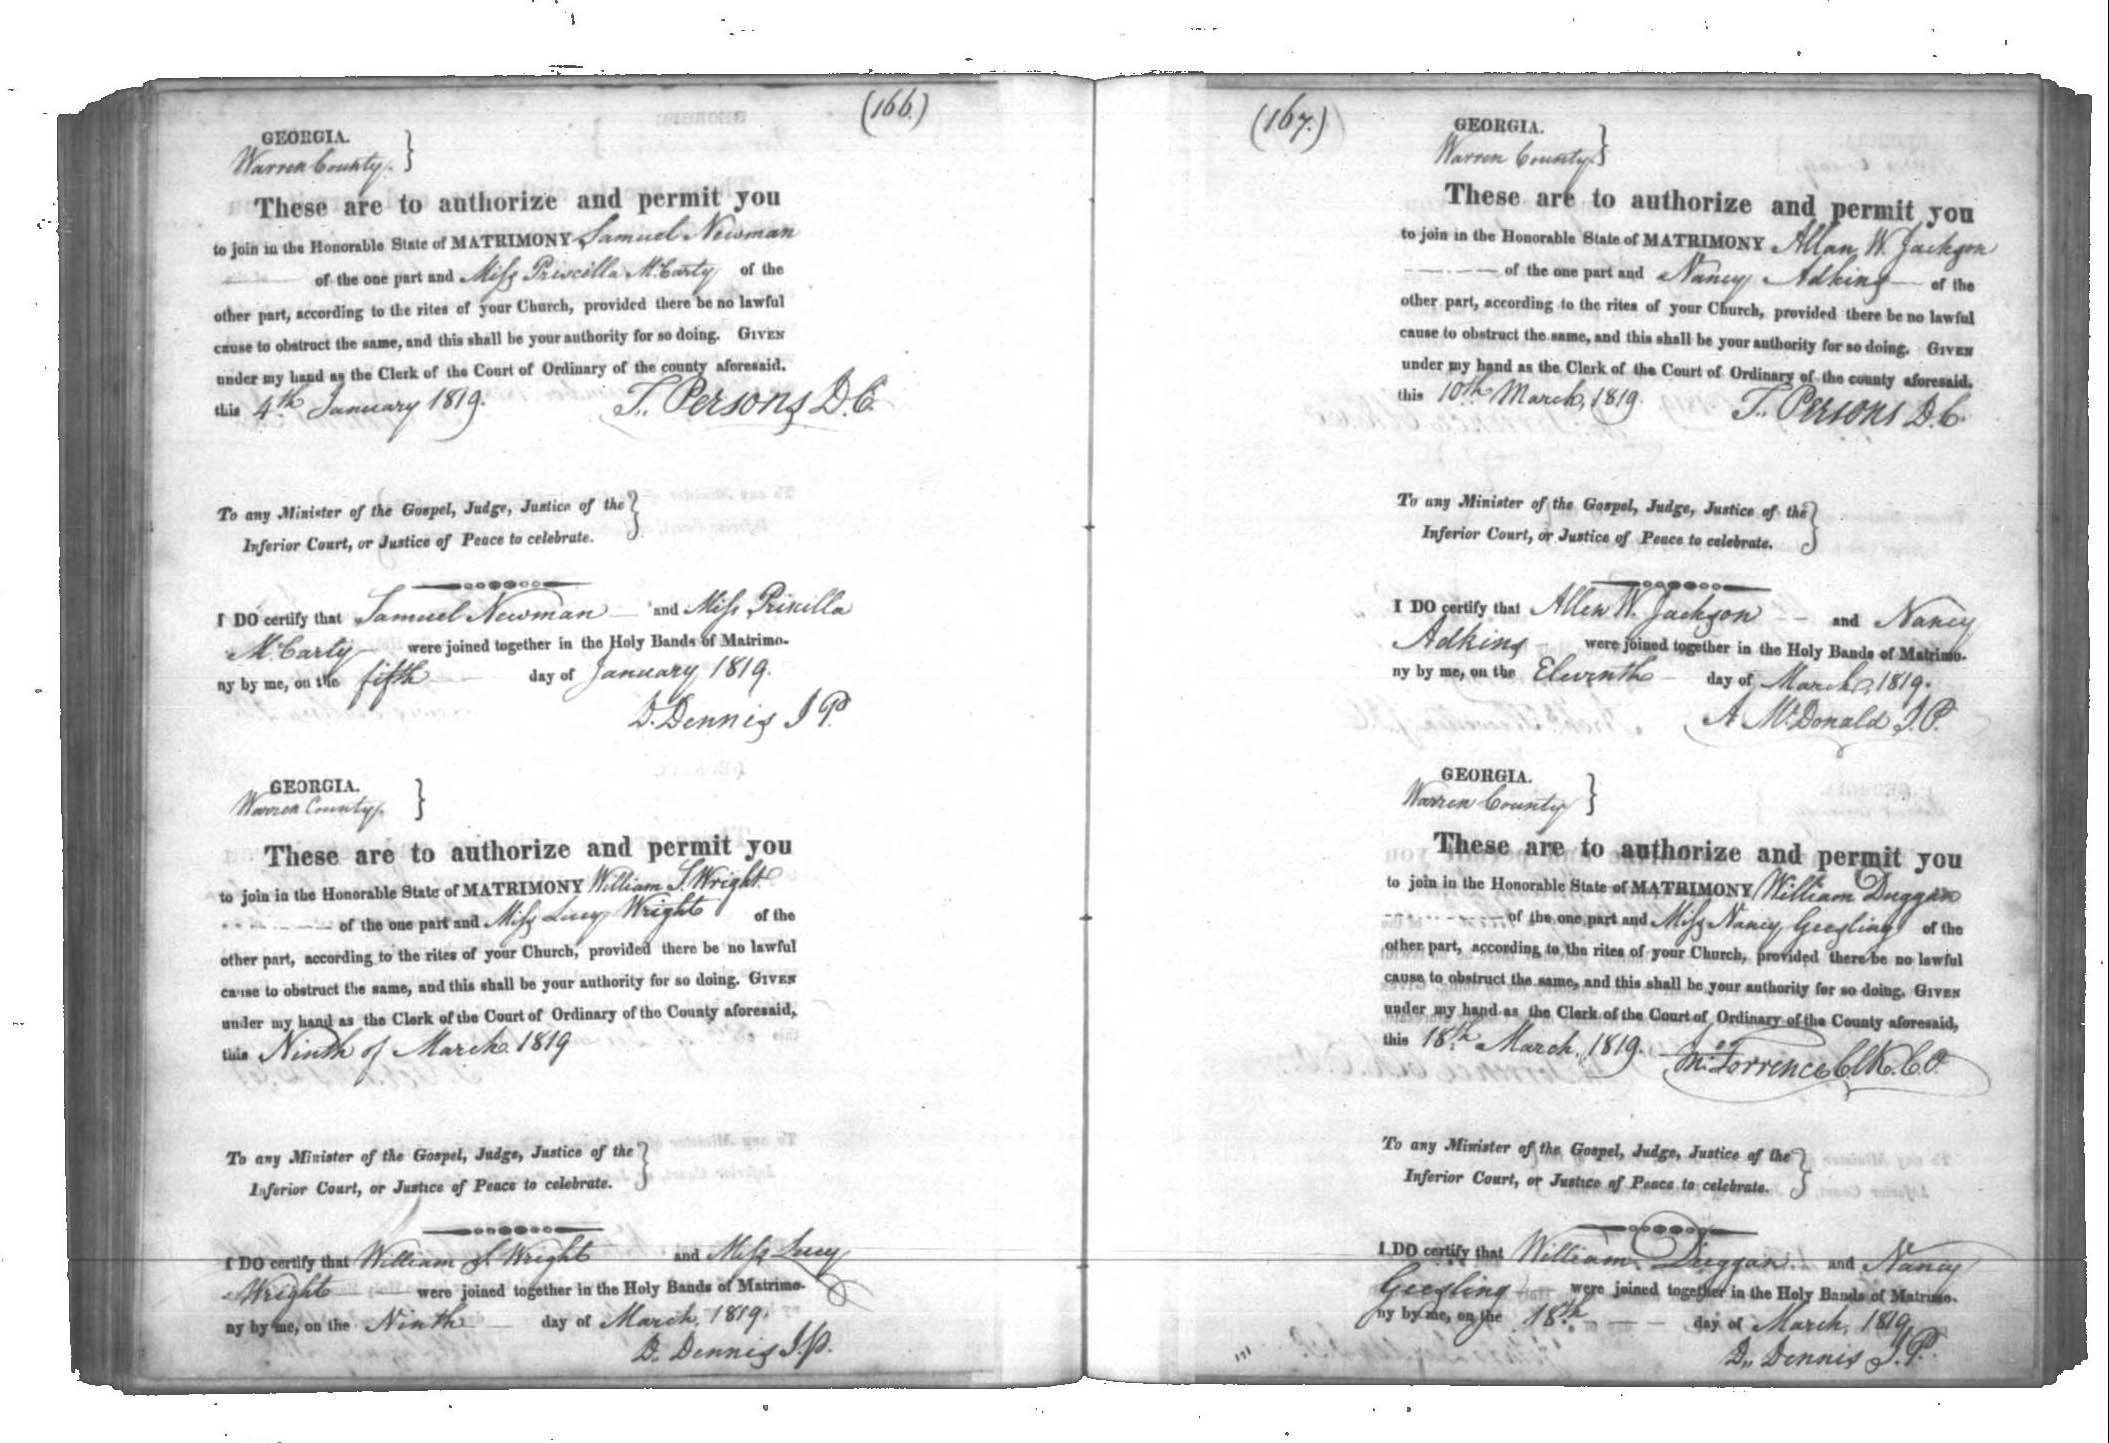 (166.)
GEORGIA.
Warren County. }
These are to authorize and permit you
to join in the Honorable State of MATRIMONY Samuel Newman
of the one part and Miss Priscilla McCarty of the
other part, according to the rites of your Church, provided there be no lawful
cause to obstruct the same, and this shall be your authority for so doing. GIVEN
under my hand as the Clerk of the Court of Ordinary of the county aforesaid.
this 4th January 1819. T. Persons D.C.
To any Minister of the Gospel, Judge, Justice of the }
Inferior Court, or Justice of Peace to celebrate.
I DO certify that Samuel Newman and Miss Priscilla
McCarty were joined together in the Holy Bands of Matrimo-
ny by me, on the fifth day of January 1819.
D. Dennis J P.
GEORGIA.
Warren County. }
These are to authorize and permit you
to join in the Honorable State of MATRIMONY William S. Wright
of the one part and Miss Lucy Wright of the
other part, according to the rites of your Church, provided there be no lawful
cause to obstruct the same, and this shall be your authority for so doing. GIVEN
under my hand as the Clerk of the Court of Ordinary of the County aforesaid,
this Ninth of March 1819
To any Minister of the Gospel, Judge, Justice of the }
Inferior Court, or Justice of Peace to celebrate.
I DO certify that William S. Wright and Miss Lucy
Wright were joined together in the Holy Bands of Matrimo-
ny by me, on the Ninth day of March, 1819.
D. Dennis J.P.
(167.)
GEORGIA.
Warren County. }
These are to authorize and permit you
to join in the Honorable State of MATRIMONY Allan W. Jackson
of the one part and Nancy Adkins of the
other part, according to the rites of your Church, provided there be no lawful
cause to obstruct the same, and this shall be your authority for so doing. GIVEN
under my hand as the Clerk of the Court of Ordinary of the county aforesaid.
this 10th March, 1819. T. Persons D.C.
To any Minister of the Gospel, Judge, Justice of the }
Inferior Court, or Justice of Peace to celebrate.
I DO certify that Allen W. Jackson and Nancy
Adkins were joined together in the Holy Bands of Matrimo-
ny by me, on the Elevnth day of March, 1819.
A McDonald J.P.
GEORGIA.
Warren County }
These are to authorize and permit you
to join in the Honorable State of MATRIMONY William Duggan
of the one part and Miss Nancy Geesling of the
other part, according to the rites of your Church, provided there be no lawful
cause to obstruct the same, and this shall be your authority for so doing. GIVEN
under my hand as the Clerk of the Court of Ordinary of the County aforesaid,
this 18th March, 1819. Torrence Clk. C.O.
To any Minister of the Gospel, Judge, Justice of the }
Inferior Court, or Justice of Peace to celebrate.
I DO certify that William Duggan and Nancy
Geesling were joined together in the Holy Bands of Matrimo-
ny by me, on the 18th day of March, 1819
D. Dennis J.P.